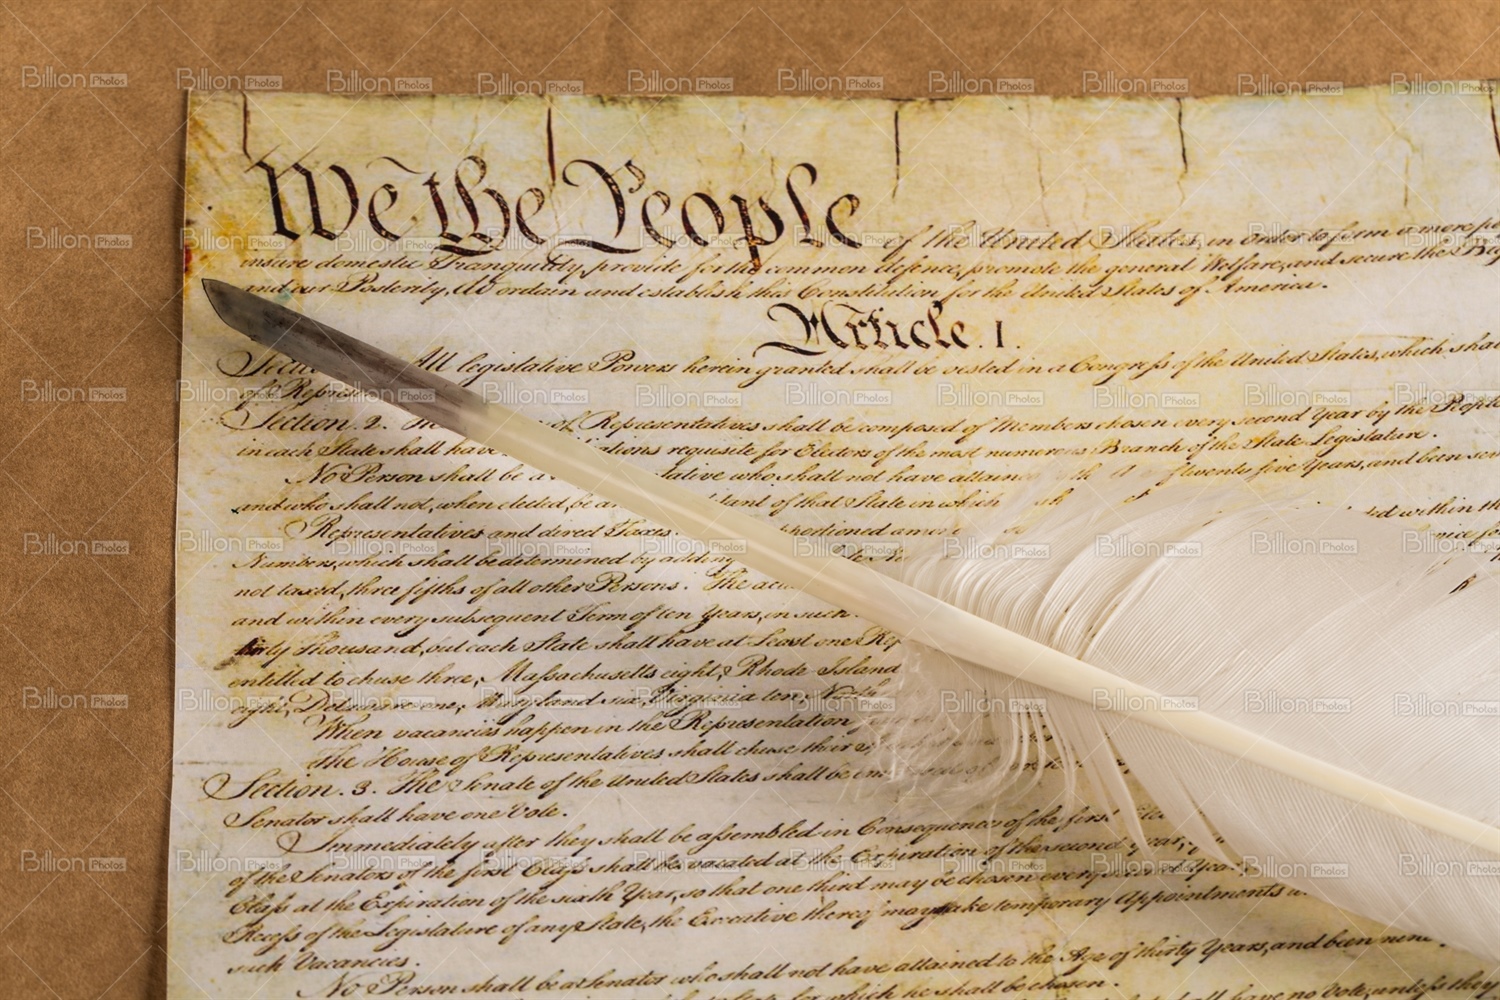 We the People of the United States, in Order to form a more
insure domestic Tranquility, provide for the common defence, promote the general Welfare, and secure the
and our Posterity, do ordain and establish this Constitution for the United States of America.
Article. I.
All legislative Powers herein granted shall be vested in a Congress of the United States, which
of
Section. 2. The of Representatives shall be composed of Members chosen every second Year by the People
in each State shall have requisite for Electors of the most numerous Branch of the State Legislature.
No Person shall be a who shall not have twenty five Years, and been
and who shall not, when elected, be an of that State in which
Representatives and direct Taxes within
Numbers, which shall be determined by adding
not taxed, three fifths of all other Persons. The
and within every subsequent Term of ten Years, in such
thirty Thousand, but each State shall have at Least one
entitled to chuse three, Massachusetts eight, Rhode Island
eight, Delaware one, Maryland six, Virginia ten, North
When vacancies happen in the Representation
The House of Representatives shall chuse their
Section. 3. The Senate of the United States shall be
Senator shall have one Vote.
Immediately after they shall be assembled in Consequence of the first
of the Senators of the first Class shall be vacated at the Expiration of the second Year,
Class at the Expiration of the sixth Year, so that one third may be chosen every second Year;
Recess of the Legislature of any State, the Executive thereof may make temporary Appointments
such Vacancies.
No Person shall be a Senator who shall not have attained to the Age of thirty Years, and been
State for which he shall be chosen.
shall have no Vote, unless they
Billion Photos